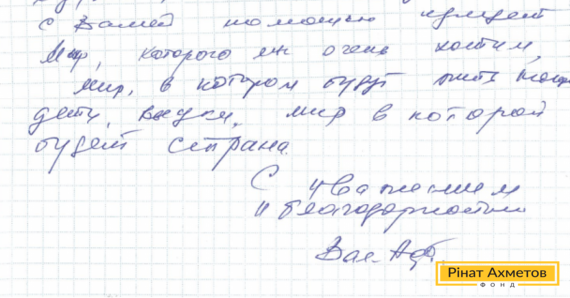 с Вашей помощью придёт
Мир, которого мы очень хотим,
мир, в котором будут жить наши
дети, внуки, мир в которой
будет страна.
С уважением
и благодарностью
Рінат Ахметов
ФОНД